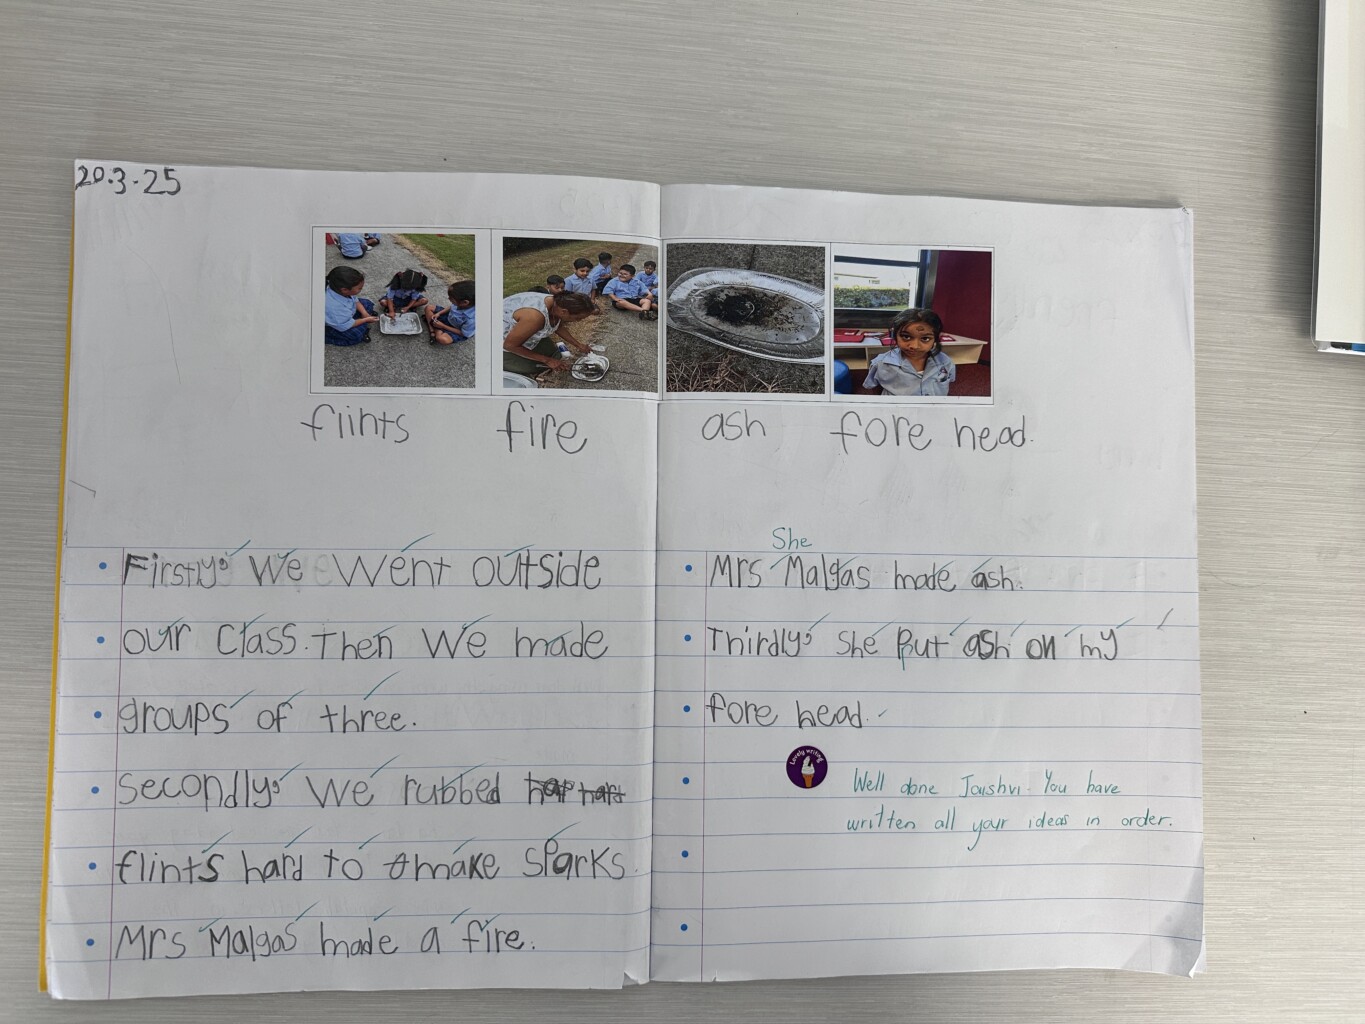 20.3.25
flints fire ash fore head.
Firstly, We Went outside
our class. Then We made
groups of three.
Secondly, We rubbed
flints hard to make sparks.
Mrs Malgas made a fire.
She
Mrs Malgas made ash.
Thirdly, she put ash on my
fore head.
Lovely writing
Well done Jaishvi. You have
written all your ideas in order.